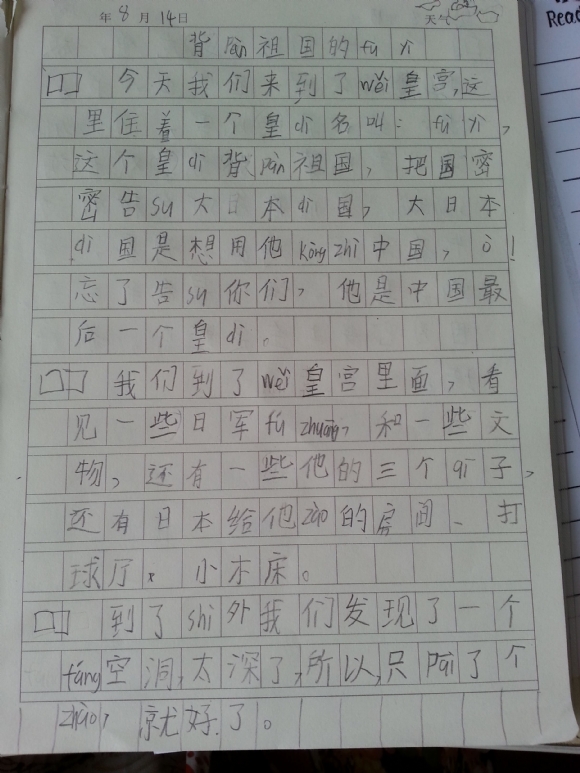 年8月14日 天气
背pàn祖国的fú yí
今天我们来到了wěi皇宫,这
里住着一个皇di名叫:fú yí,
这个皇di背pàn祖国,把国密
密告su大日本di国,大日本
di国是想用他kòng zhì中国,ò!
忘了告su你们,他是中国最
后一个皇di。
我们到了wěi皇宫里面,看
见一些日军fú zhuāng,和一些文
物,还有一些他的三个qī子,
还有日本给他zào的房间、打
球厅、小木床。
到了shì外我们发现了一个
fáng空洞,太深了,所以,只pāi了个
zhào,就好了。
Read